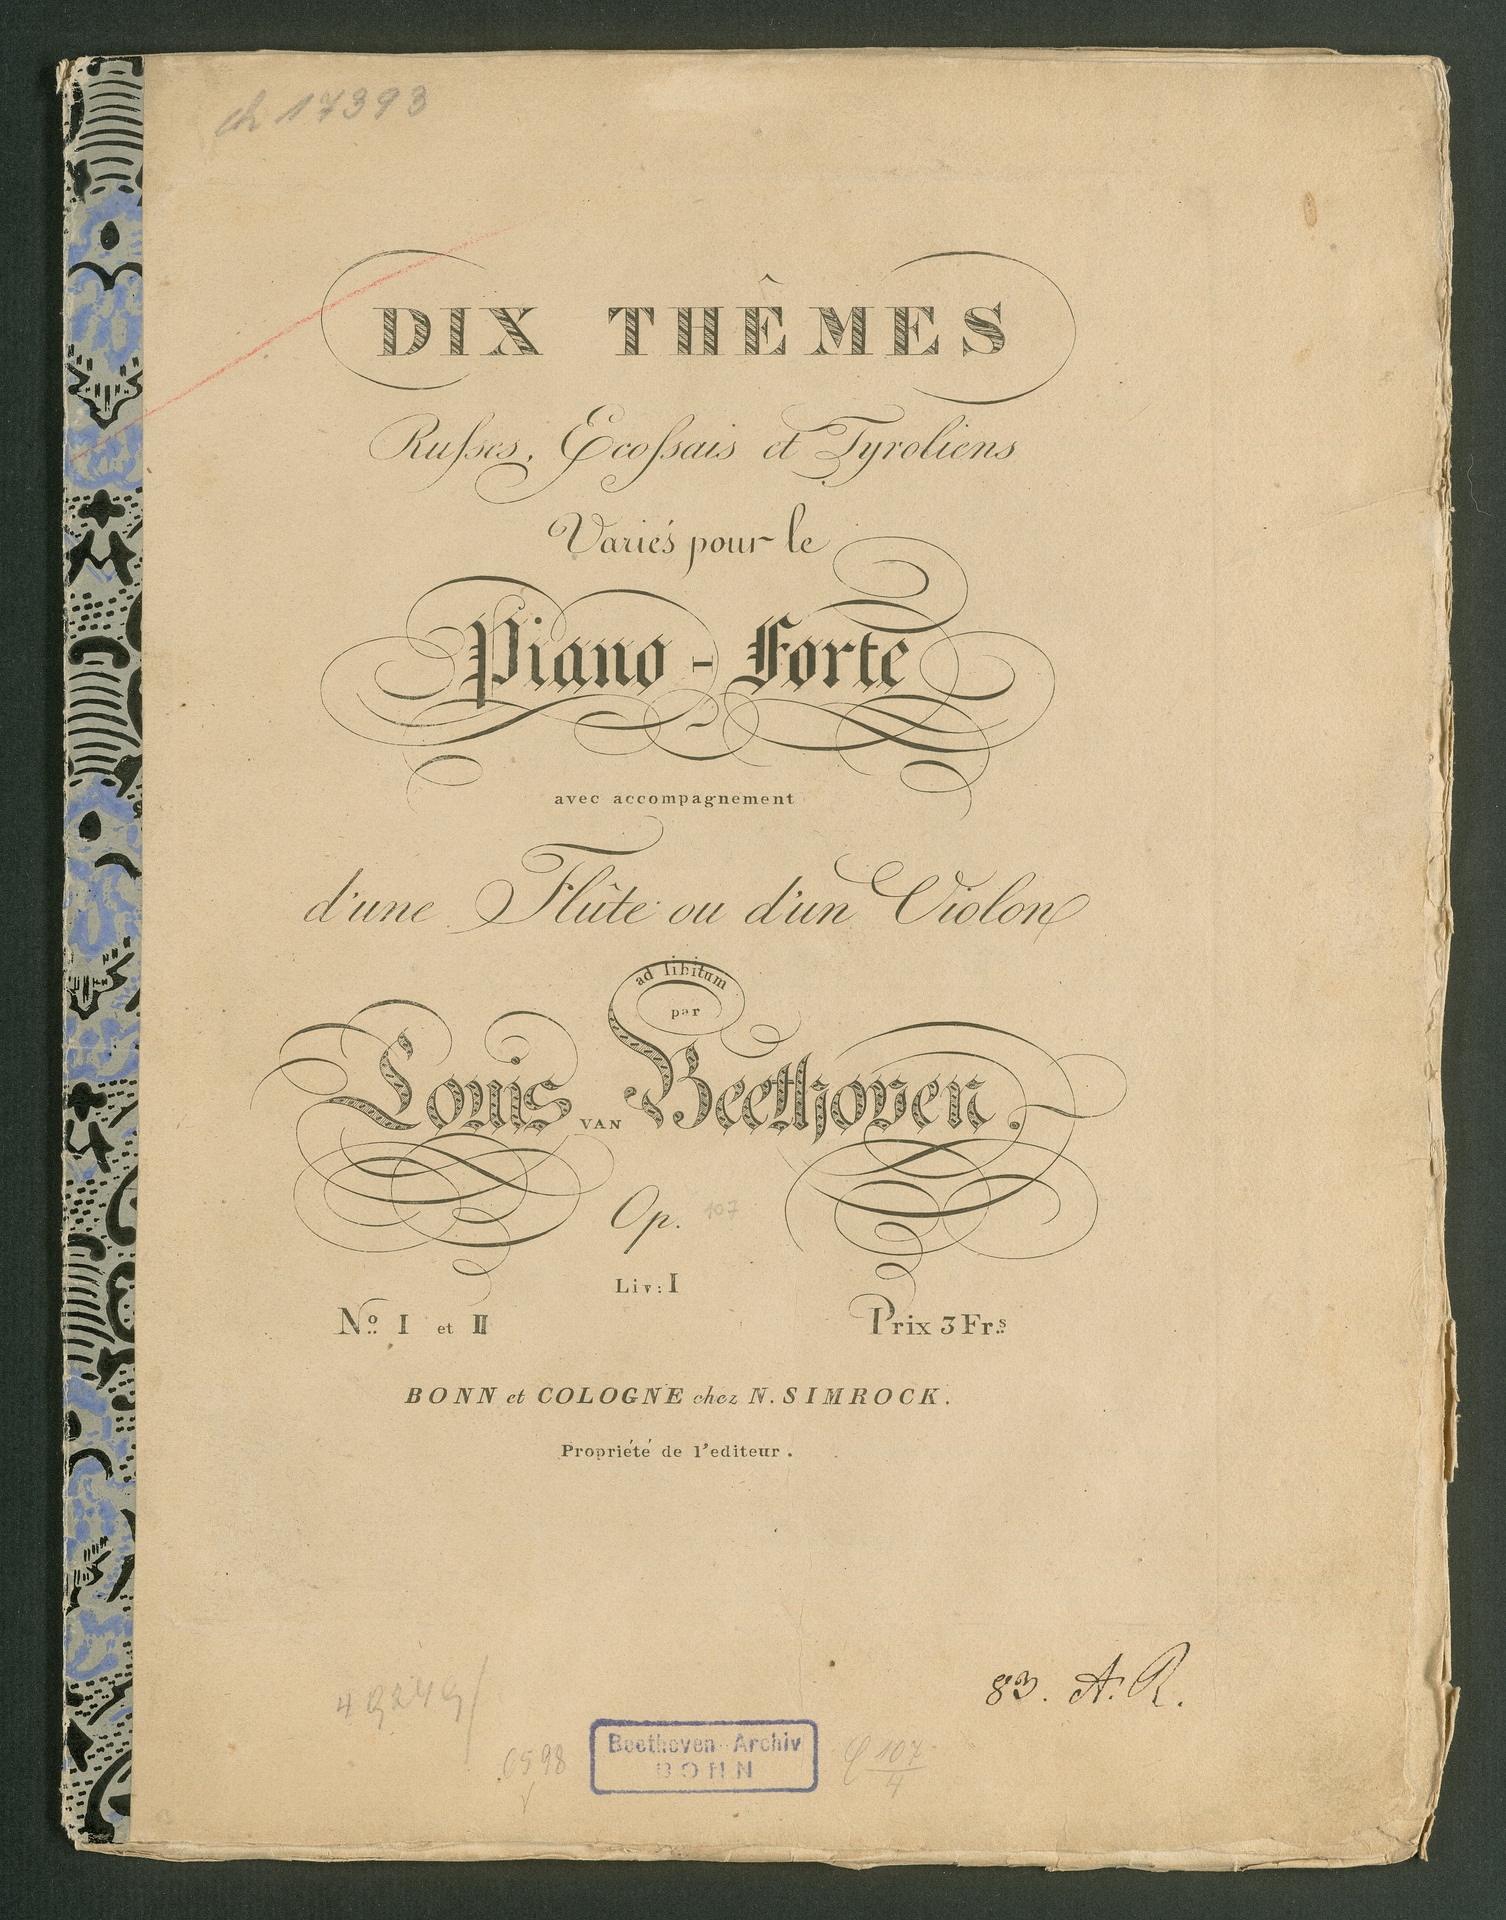 ch 17393
DIX THÊMES
Russes, Ecossais et Tyroliens
Variés pour le
Piano - Forte
avec accompagnement
d'une Flûte ou d'un Violon
ad libitum
par
Louis VAN Beethoven.
Op. 107
Liv: I
No. I et II
Prix 3 Frs.
BONN et COLOGNE chez N. SIMROCK.
Propriété de l'editeur.
83. A. R.
Beethoven-Archiv
BONN
107
4